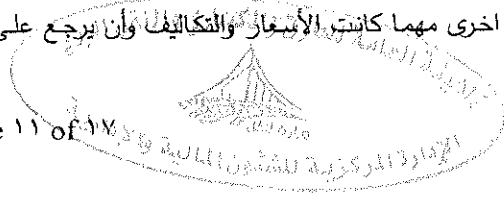 اخرى مهما كانت الأسعار والتكاليف وأن يرجع على
١١ of ١٧
الإدارة المركزية للشئون المالية